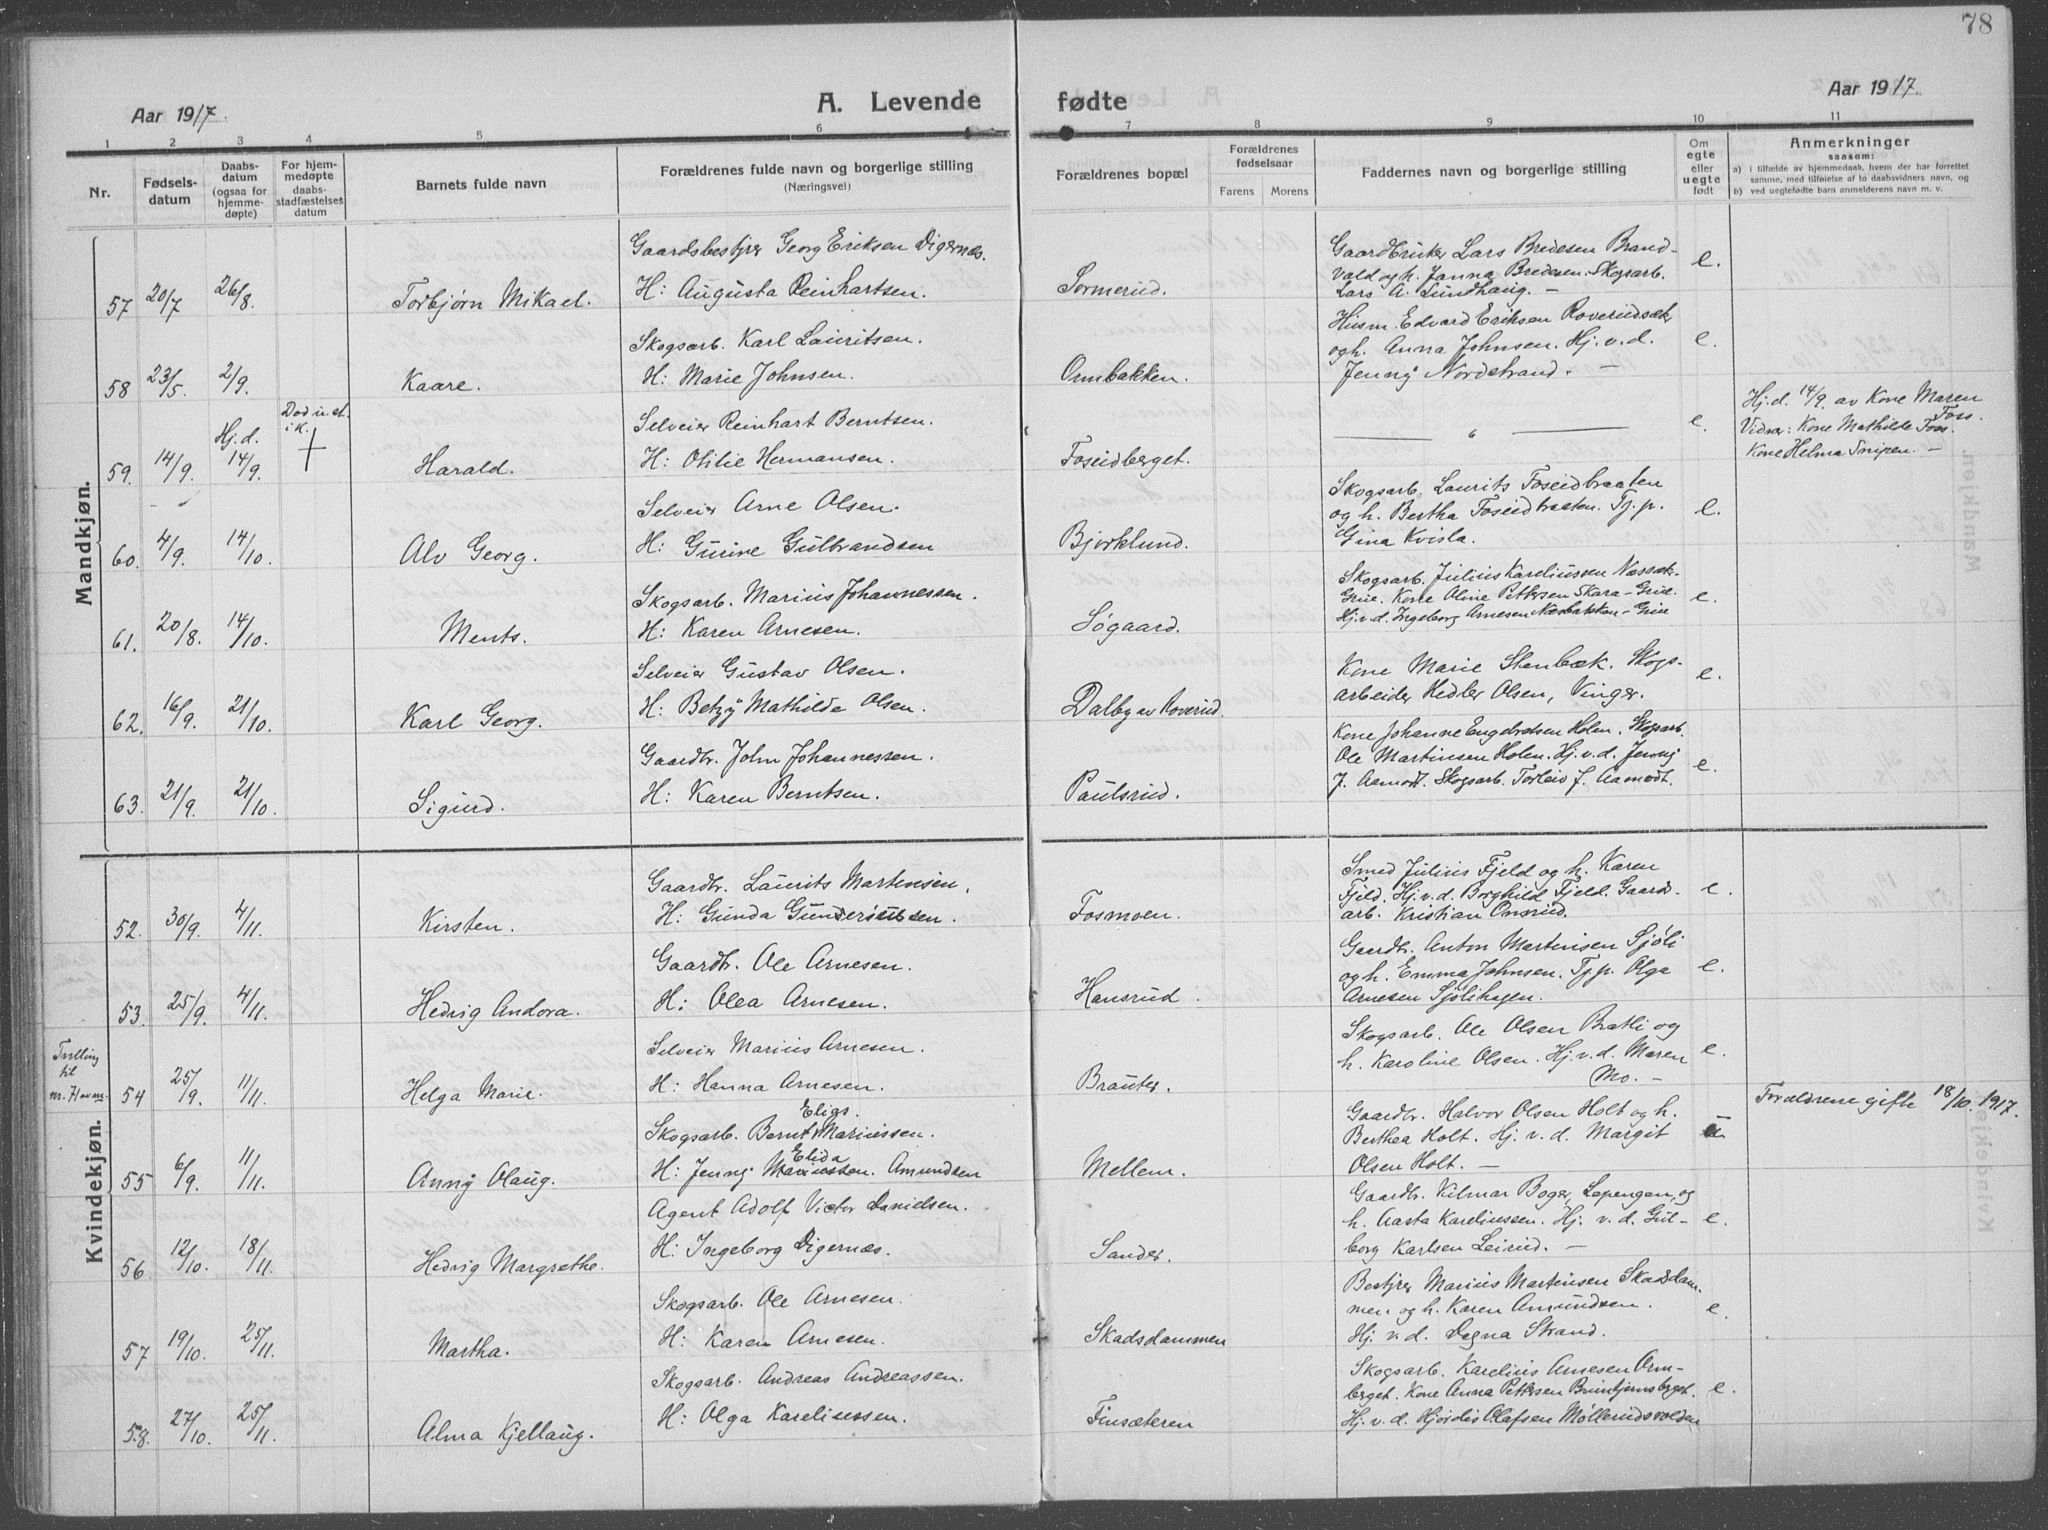 78
Aar 1917.
A. Levende fødte
Aar 1917.
1 2 3 4 5 6 7 8 9 10 11
Nr.
Fødsels-
datum
Daabs-
datum
(ogsaa for
hjemme-
døpte)
For hjem-
medøpte
daabs-
stadfæstelses
datum
Barnets fulde navn
Forældrenes fulde navn og borgerlige stilling
(Næringsvei)
Forældrenes bopæl
Forældrenes
fødselsaar
Farens
Morens
Faddernes navn og borgerlige stilling
Om
egte
eller
uegte
født
Anmerkninger
saasom:
a) i tilfælde av hjemmedaab, hvem der har forrettet
samme, med tilføielse af to daabsvidners navn, og
b) ved uegtefødte barn anmelderens navn m. v.
Mandkjøn.
57 20/7 26/8. Torbjørn Mikael.
Gaardsbestyrer Georg Eriksen Digernæs.
H: Augusta Reinhartsen.
Sormerud.
Gaardbruker Lars Bredesen Brand-
vald og h. Janna Bredesen. Skogsarb.
Lars A. Lundhaug. —
e.
58 23/5. 2/9. Kaare.
Skogsarb. Karl Lauritsen.
H: Marie Johnsen.
Ormbakken.
Husm. Edvard Eriksen Roverudsæt.
og h. Anna Johnsen. Hj. v. d.
Jenny Nordstrand. —
e.
59. 14/9. Hj. d. 14/9.
Død u. at.
i K.
Harald.
Selveier Reinhart Berntsen.
H: Otilie Hermansen.
Foseidberget.
e.
Hj. d. 14/9. av Kone Maren Foss
Vidner: Kone Mathilde Foss.
Kone Helma Snipen. —
60. 4/9. 14/10. Alv Georg.
Selveier Arne Olsen.
H: Gurine Gulbrandsen
Bjørklund.
Skogsarb. Laurits Foseidbraaten
og h. Bertha Foseidbraaten. Tj. p.
Gina Kvisla.
e.
61. 20/8. 14/10. Ments.
Skogsarb. Marius Johannessen.
H: Karen Arnesen.
Søgaard.
Skogsarb. Julius Kareliussen Næssæt-
Grue. Kone Oline Pettersen Skara-Grue.
Hj. v. d. Ingeborg Arnesen Næsbakken-Grue
e.
62. 16/9. 21/10. Karl Georg.
Selveier Gustav Olsen.
H: Betzy Mathilde Olsen.
Dalby av Roverud.
Kone Marie Stenbæk. Skogs-
arbeider Hedler Olsen, Vinger.
e.
63. 21/9. 21/10. Sigurd.
Gaardbr. John Johannessen.
H: Karen Berntsen.
Paulsrud.
Kone Johanne Engebretsen Holen. Skogsarb.
Ole Martinsen Holen. Hj. v. d. Jenny
J. Aamodt. Skogsarb. Torleiv J. Aamodt.
e.
Kvindekjøn.
52. 30/9. 4/11. Kirsten.
Gaardbr. Laurits Martinsen.
H: Gunda Gunderiussen.
Fosmoen.
Smed Julius Fjeld og h. Karen
Fjeld. Hj. v. d. Borghild Fjeld. Gaards-
arb. Kristian Onsrud.
e.
53. 25/9. 4/11. Hedvig Andora.
Gaardbr. Ole Arnesen.
H: Olea Arnesen.
Hansrud.
Gaardbr. Anton Martinsen Sjøli
og h. Emma Johnsen. Tj. p. Olga
Arnesen Sjølihagen.
e.
Tvilling
til
nr. 7
54 25/9. 11/11. Helga Marie.
Selveier Marius Arnesen.
H: Hanna Arnesen.
Brauter.
Skogsarb. Ole Olsen Bratli og
h. Karoline Olsen. Hj. v. d. Maren
Mo. —
e.
55 6/9. 11/11. Anny Olaug.
Eligs.
Skogsarb. Bernt Mariussen.
Elida
H: Jenny Mariussen. Amundsen
Mellem.
Gaardbr. Halvor Olsen Holt og h.
Berthea Holt. Hj. v. d. Margit
Olsen Holt. —
Forældrene gifte 18/10. 1917.
56. 12/10. 18/11. Hedvig Margrethe.
Agent Adolf Victor Danielsen.
H: Ingeborg Digernæs.
Sander.
Gaardbr. Vilmar Boger, Lepengen, og
h. Aasta Kareliussen. Hj. v. d. Gul-
borg Karlsen Leirud. —
e.
57 19/10. 25/11. Martha.
Skogsarb. Ole Arnesen.
H: Karen Arnesen.
Skadsdammen
Bestyrer Marius Martinsen Skadsdam-
men og h. Karen Amundsen.
Hj. v. d. Dagna Strand.
e.
58. 27/10. 25/11. Alma Kjellaug.
Skogsarb. Andreas Andreassen.
H: Olga Kareliussen.
Finsætren
Skogsarb. Karelius Arnesen Orm-
berget. Kone Anna Pettersen Bruntjernsberget.
Hj. v. d. Hjørdis Olafsen Møllerudsvolden
e.